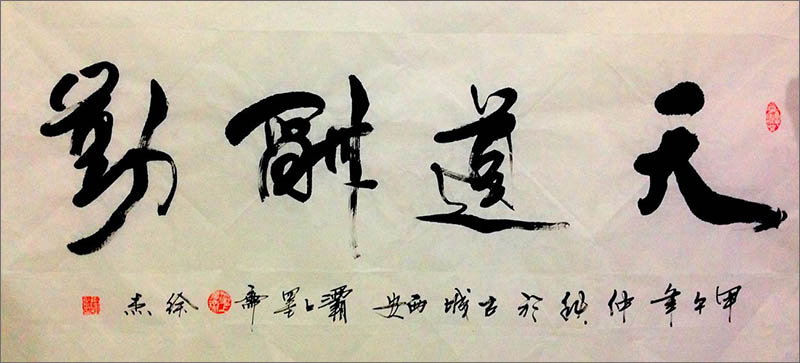 天道酬勤
甲午年仲秋於古城西安灞上墨斋徐杰